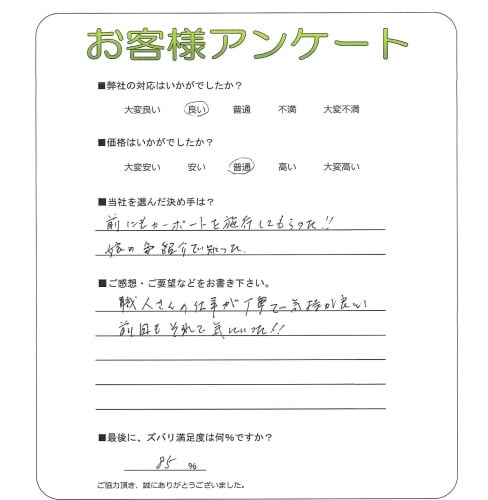 お客様アンケート
■弊社の対応はいかがでしたか？
大変良い 良い 普通 不満 大変不満
■価格はいかがでしたか？
大変安い 安い 普通 高い 大変高い
■当社を選んだ決め手は？
前にもカーポートを施行してもらった!!
紹介で知った.
■ご感想・ご要望などをお書き下さい。
職人さんの仕事が丁寧で気持が良い
前回もそれで気にいった!!
■最後に、ズバリ満足度は何%ですか？
85 %
ご協力頂き、誠にありがとうございました。